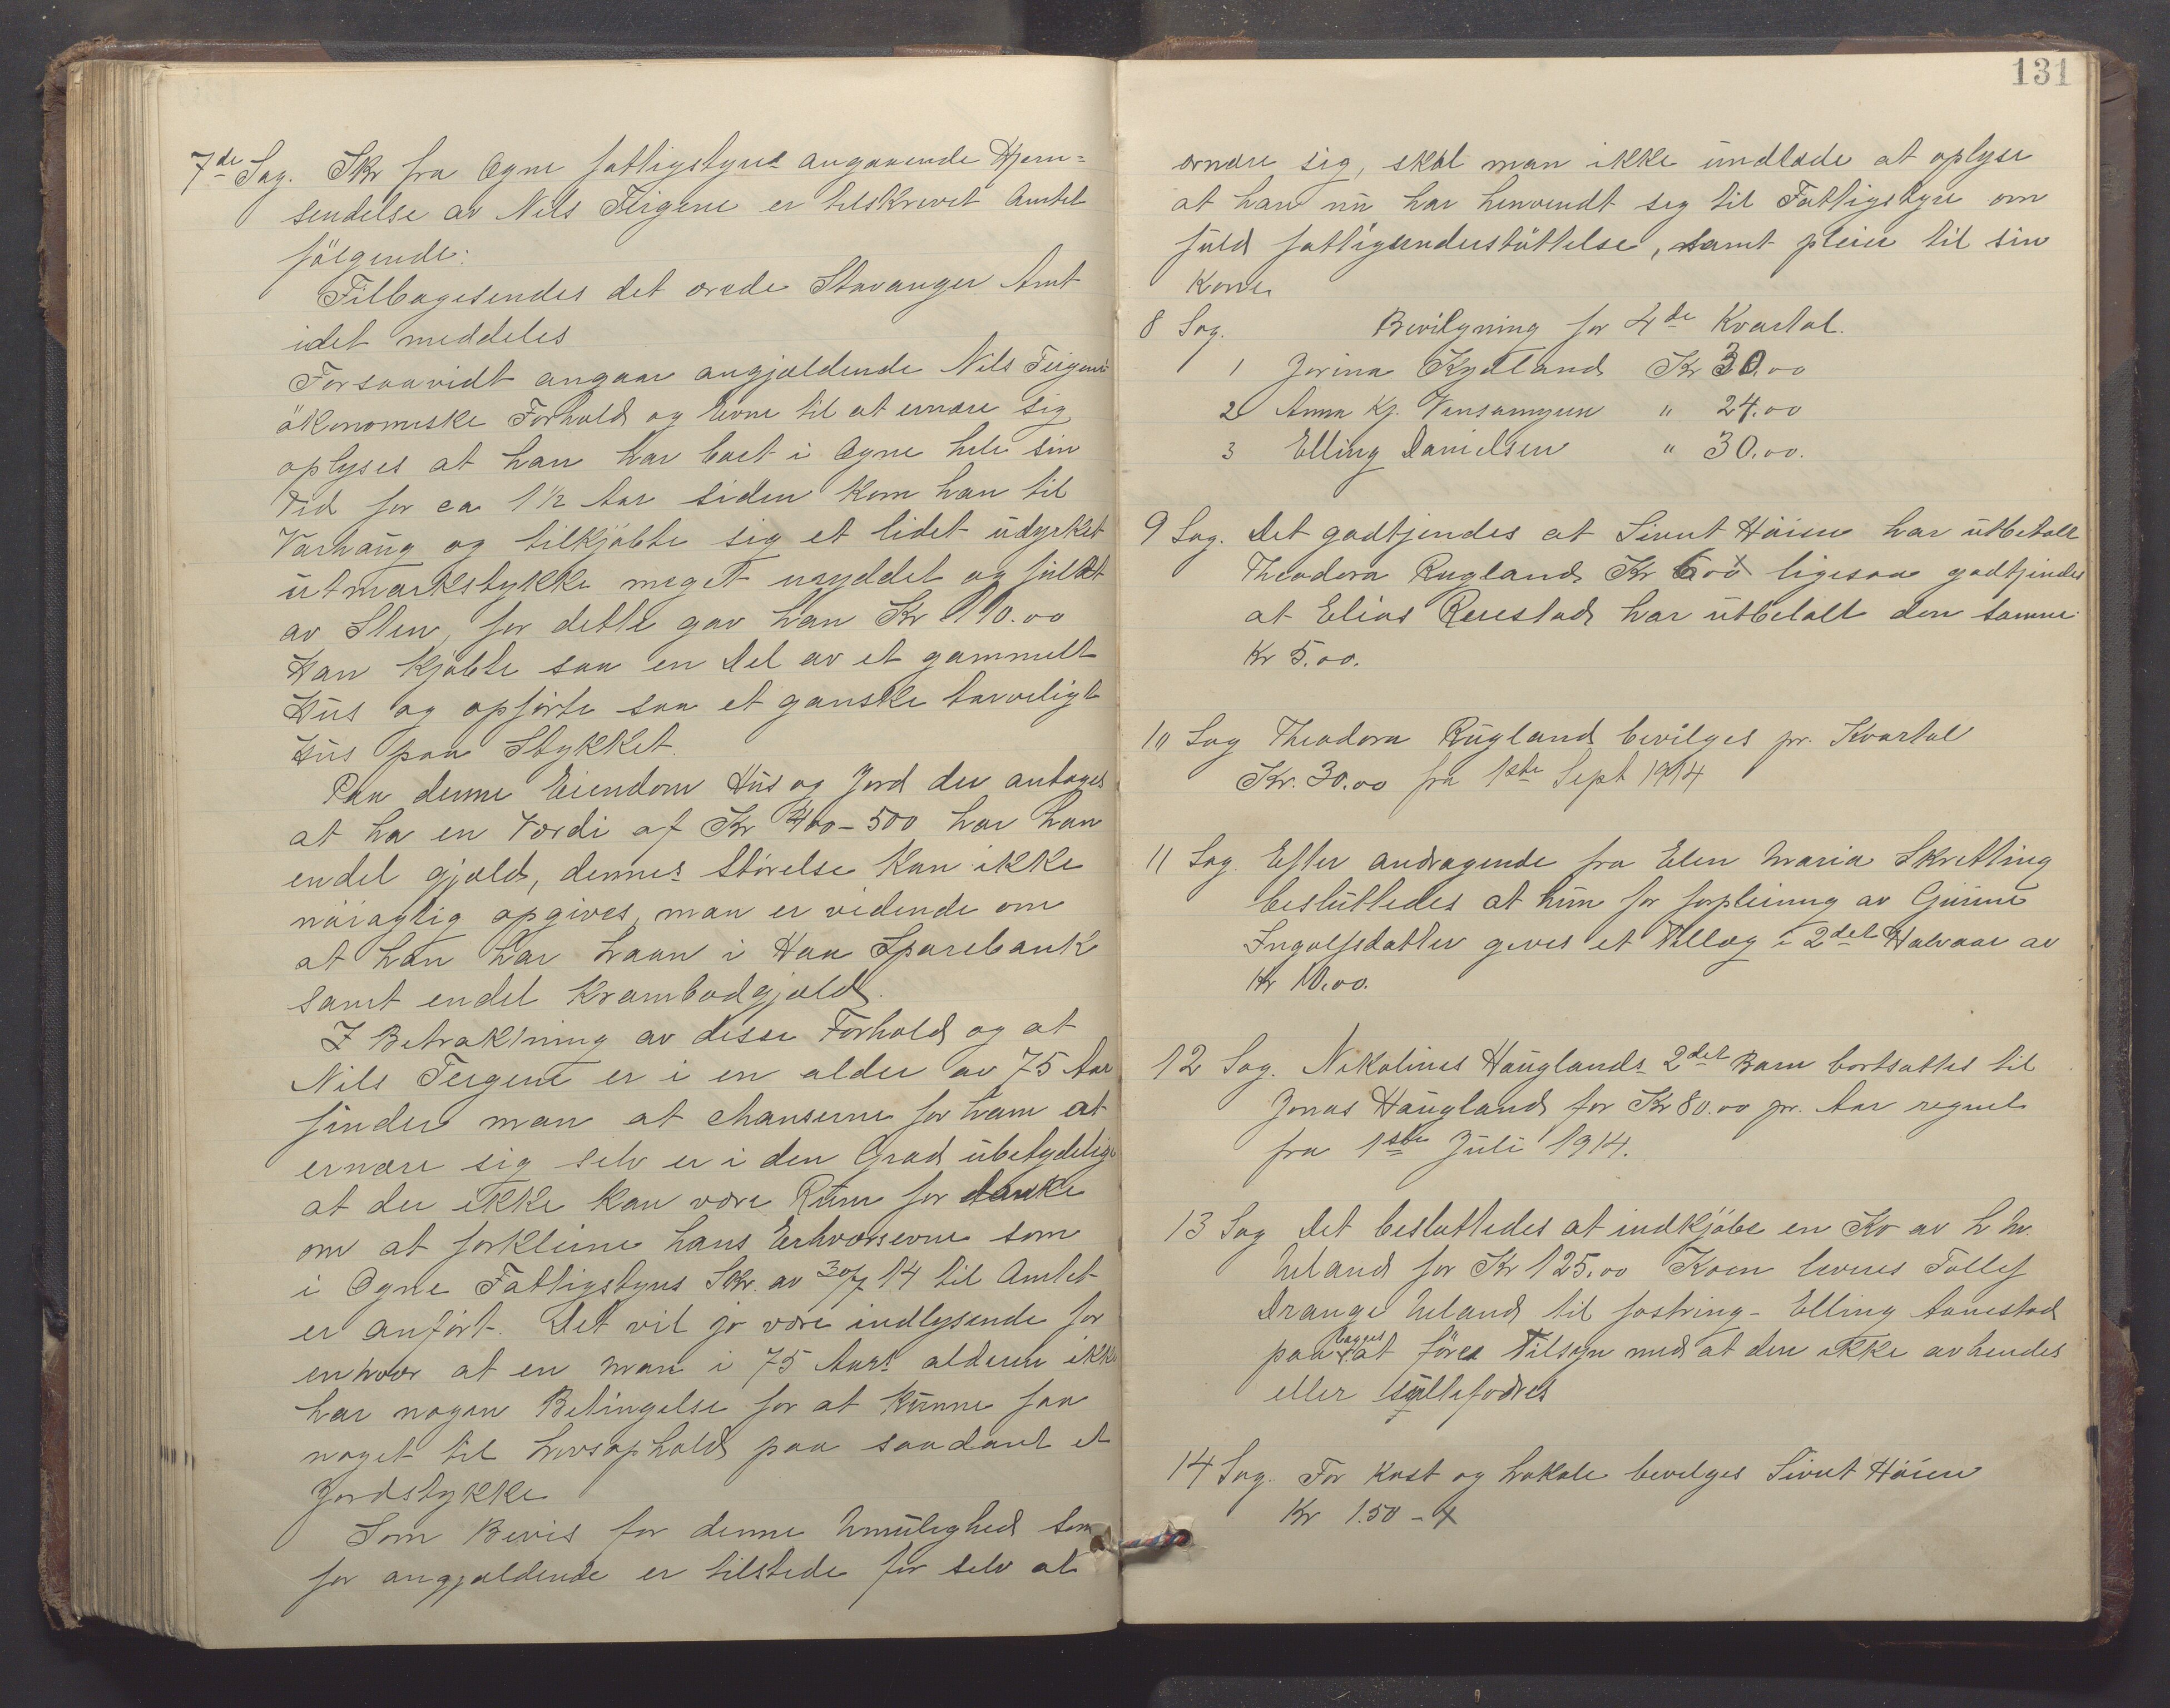 7de Sag. Skr fra Ogne fattigstyre angaaende Hjem=
sendelse av Nils Teigene er tilskrevet Amtet
følgende:
Tilbagesendes det ærede Stavanger Amt
idet meddeles
Forsaavidt angaar angjældende Nils Teigene
økonomiske Forhold og Evne til at ernære sig
oplyses at han har boet i Ogne hele sin
Tid for ca 1½ Aar siden kom han til
Varhaug og tilkjøbte sig et lidet udyrket
utmarkstykke meget uryddet og fuldt
av Sten, for dette gav han Kr 110.00
Han kjøbte saa en Del av et gammelt
Hus og opførte saa et ganske tarveligt
Hus paa Stykket.
Paa denne Eiendom Hus og Jord der antages
at ha en Værdi af Kr 400-500 har han
endel gjæld, dennes Størelse kan ikke
nøiagtig opgives, man er vidende om
at han har Laan i Haa Sparebank
samt endel Krambodgjæld.
I Betraktning av disse Forhold og at
Nils Teigene er i en alder av 75 Aar
finder man at chanserne for ham at
ernære sig selv er i den Grad ubetydelige
at der ikke kan være Rum for tanke
om at forkleine hans Erhværsevne som
i Ogne Fattigstyres Skr. av 30/7 14 til Amtet
er anført. Det vil jo være indlysende for
enhvær at en Man i 75 Aars alderen ikke
har nogen Betingelse for at kunne faa
noget til Livsophold paa saadant et
Jordstykke
Som Bevis for denne Umulighed som
for angjældende er tilstede for selv at
131
ernære sig, skal man ikke undlade at oplyse
at han nu har henvendt sig til Fattigstyre om
fuld fattigunderstøttelse, samt pleie til sin
Kone
8 Sag. Bevilgning for 4de Kvartal.
1 Jorina Kydland Kr 30.00
2 Anna Kj. " 24.00
3 Elling Danielsen " 30.00.
9 Sag. Det godkjendes at Sivert Høien har utbetalt
Theodora Rugland Kr 6.00 ligesaa godkjendes
at Elias Reiestad har utbetalt den samme
Kr 5.00.
10 Sag Theodora Rugland bevilges pr. Kvartal
Kr. 30.00 fra 1ste Sept 1914
11 Sag. Efter andragende fra Elen Maria Skretting
besluttedes at hun for forpleining av Gunine
Ingolfsdatter gives et Tillæg i 2det Halvaar av
Kr 10.00.
12 Sag. Nikolines Hauglands 2det Barn bortsattes til
Jonas Haugland for Kr 80.00 pr. Aar regnet
fra 1ste Juli 1914.
13 Sag Det besluttedes at indkjøbe en Ko av L M.
Ueland for Kr 125.00 Koen leveres Tollef
Drange Ueland til fostring - Elling Aanestad
paalægges at føre Tilsyn med at den ikke avhendes
eller sultefodres
14 Sag. For Kost og Lokale bevilges Sivert Høien
Kr 1.50 -